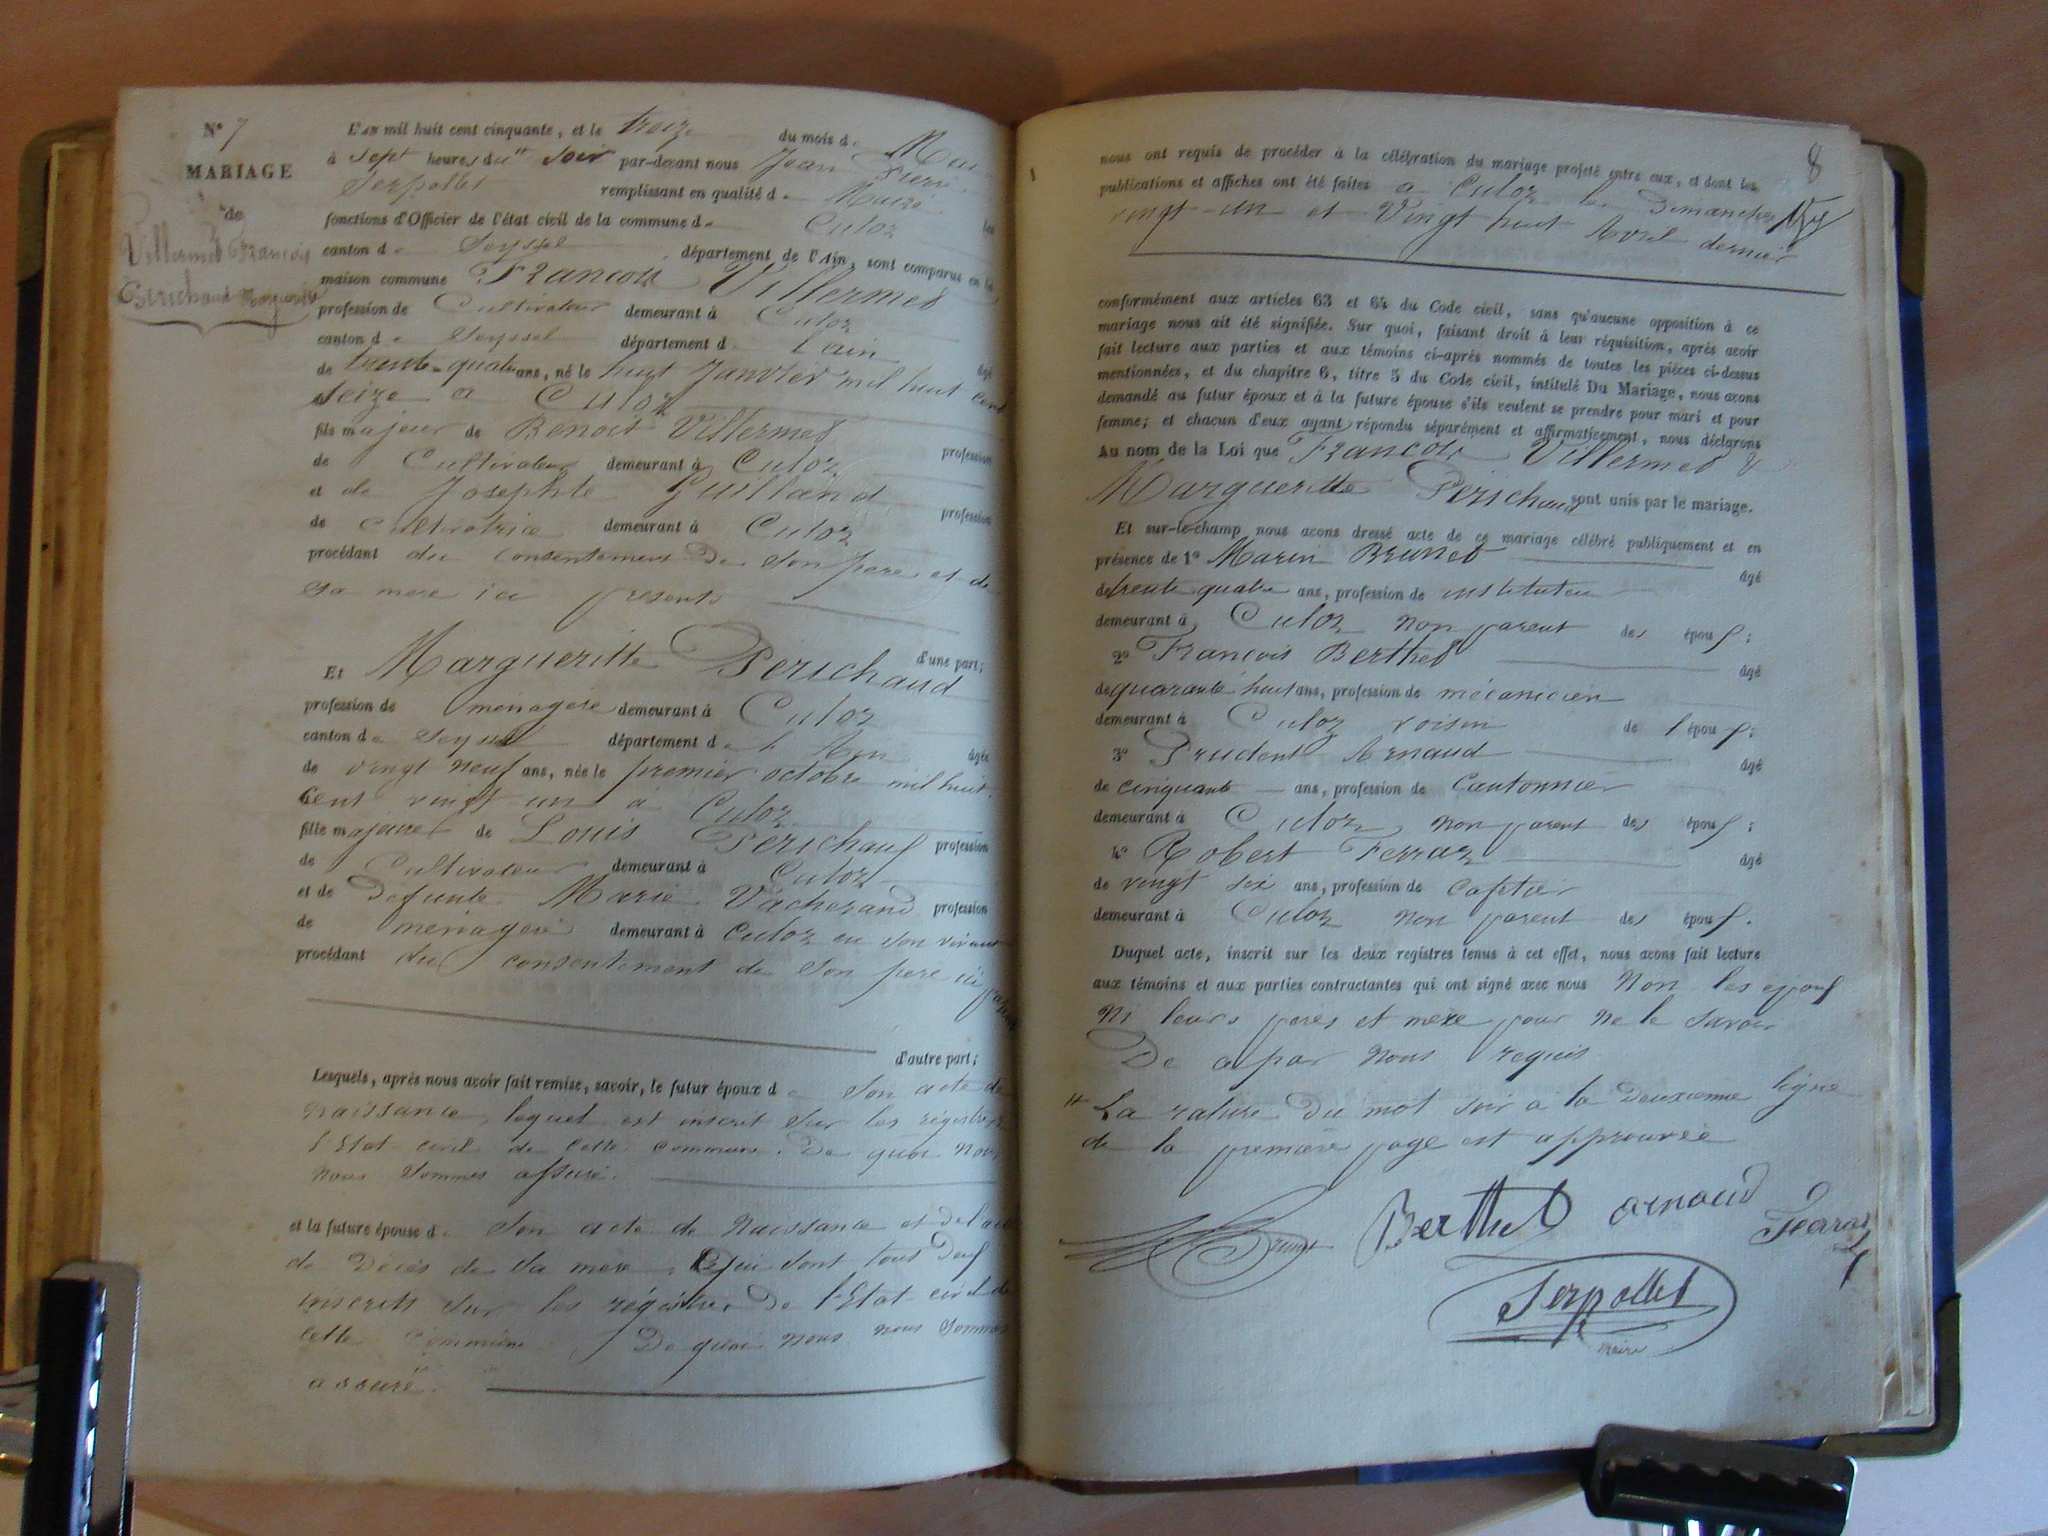 N° 7
MARIAGE
de
Villermet François
Perichaud Marguerite
L'AN mil huit cent cinquante, et le treize du mois de Mai
à sept heures du soir par-devant nous Jean Pierre
Serpollet remplissant en qualité de Maire les
fonctions d'Officier de l'état civil de la commune de Culoz
canton de Seyssel département de l'Ain, sont comparus en la
maison commune François Villermet
profession de Cultivateur demeurant à Culoz
canton de Seyssel département de l'ain âgé
de trente-quatre ans, né le huit Janvier mil huit cent
seize a Culoz
fils majeur de Benoit Villermet profession
de Cultivateur demeurant à Culoz
et de Josephte Guilland profession
de cultivatrice demeurant à Culoz
procédant du consentement de son pere et de
sa mere ici presents
d'une part;
Et Margueritte Perichaud
profession de ménagere demeurant à Culoz
canton de Seyssel département de l'Ain âgée
de vingt neuf ans, née le premier octobre mil huit
cent vingt un à Culoz
fille majeure de Louis Périchauf profession
de Cultivateur demeurant à Culoz
et de defunte Marie Vacherand profession
de ménagere demeurant à Culoz en son vivant
procédant du consentement de son pere ici
present
d'autre part;
Lesquels, après nous avoir fait remise, savoir, le futur époux de son acte de
naissance lequel est inscrit sur les régistres
l'Etat civil de cette commune. De quoi nous
nous sommes assuré.
et la future épouse de son acte de Naissance et de l'acte
de Décès de sa mere, qui sont tous deuf
inscrits sur les régistres De l'Etat civil de
cette commune. De quoi nous nous sommes
assuré.
8
nous ont requis de procéder à la célébration du mariage projeté entre eux, et dont les
publications et affiches ont été faites a Culoz les Dimanches
vingt-un et Vingt huit Avril dernier
conformément aux articles 63 et 64 du Code civil, sans qu'aucune opposition à ce
mariage nous ait été signifiée. Sur quoi, faisant droit à leur réquisition, après avoir
fait lecture aux parties et aux témoins ci-après nommés de toutes les pièces ci-dessus
mentionnées, et du chapitre 6, titre 5 du Code civil, intitulé Du Mariage, nous avons
demandé au futur époux et à la future épouse s'ils veulent se prendre pour mari et pour
femme; et chacun d'eux ayant répondu séparément et affirmativement, nous déclarons
Au nom de la Loi que François Villermet &
Margueritte Perichaud sont unis par le mariage.
Et sur-le-champ nous avons dressé acte de ce mariage célébré publiquement et en
présence de 1° Marin Brunet âgé
de trente quatre ans, profession de instituteur
demeurant à Culoz non parent des épouf;
2° François Berthet âgé
de quarante huit ans, profession de mécanicien
demeurant à Culoz voisin de l'épouf;
3° Prudent Arnaud âgé
de cinquante ans, profession de Cantonnier
demeurant à Culoz non parent des épouf;
4° Robert Ferraz âgé
de vingt six ans, profession de cafetier
demeurant à Culoz non parent des épouf.
Duquel acte, inscrit sur les deux registres tenus à cet effet, nous avons fait lecture
aux témoins et aux parties contractantes qui ont signé avec nous Non les épouf
Ni leurs peres et mere pour ne le savoir
De a par nous requis
La rature du mot soir a la Deuxieme ligne
de la premiere page est approuvée
Berthet arnaud
Serpollet
Maire